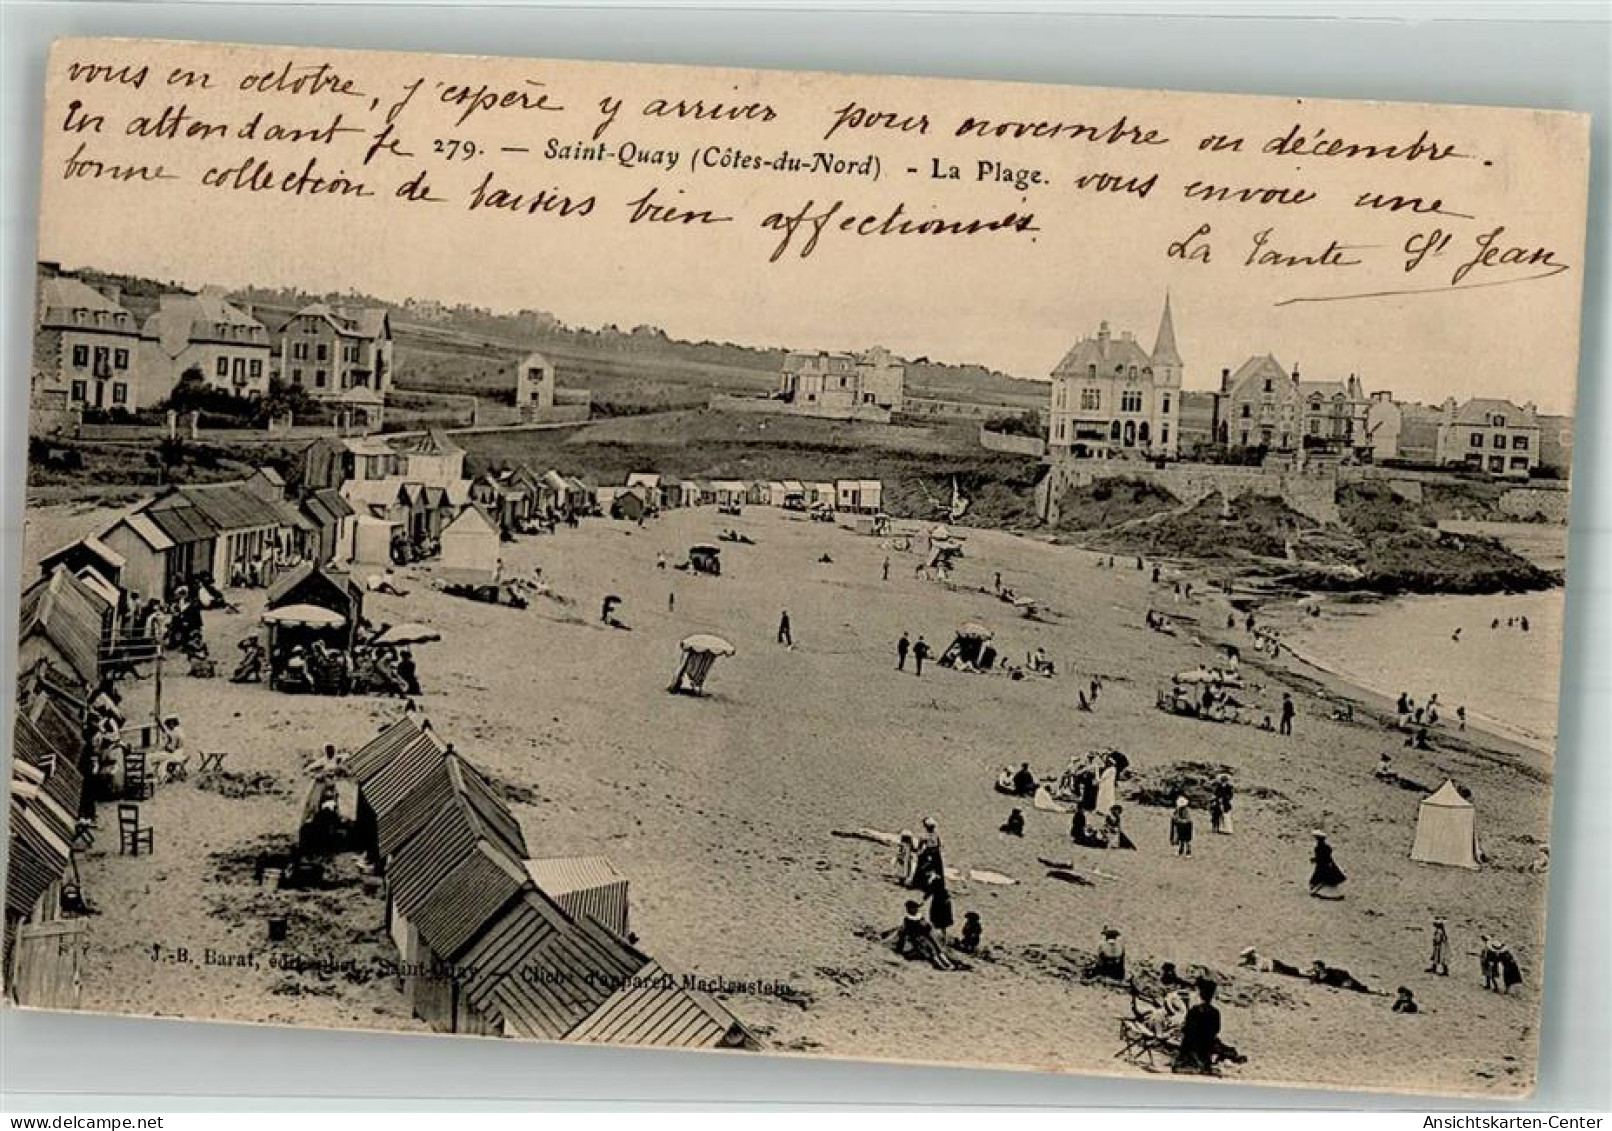 vous en octobre, j'espère y arriver pour novembre ou décembre.
En attendant je vous envoie une
279. — Saint-Quay (Côtes-du-Nord) - La Plage.
bonne collection de baisers bien affectionnés.
La Tante St Jean
J.-B. Barat, édit. phot., Saint-Quay. — Cliché d'appareil Mackenstein.
AnsichtsKarten-Center